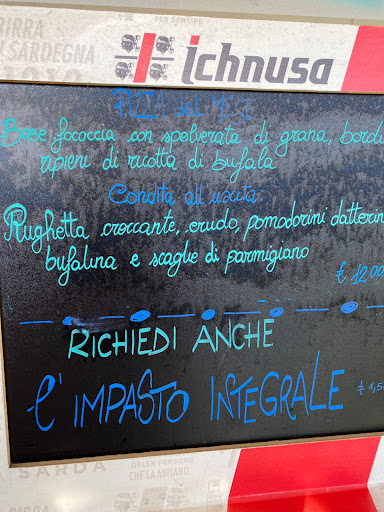 BIRRA
PER SENTIRE
SARDEGNA
ichnusa
PIZZA del MESE
Base focaccia con spolverata di grana, bordi
ripieni di ricotta di bufala
Condita all'uscita
Rughetta croccante, crudo, pomodorini datterin
bufalina e scaglie di parmigiano
€ 12,00
RICHIEDI ANCHE
l'IMPASTO INTEGRALE
1,5
SARDA
DELLE PERSONE
CHE LA ABITANO.
BIRRA